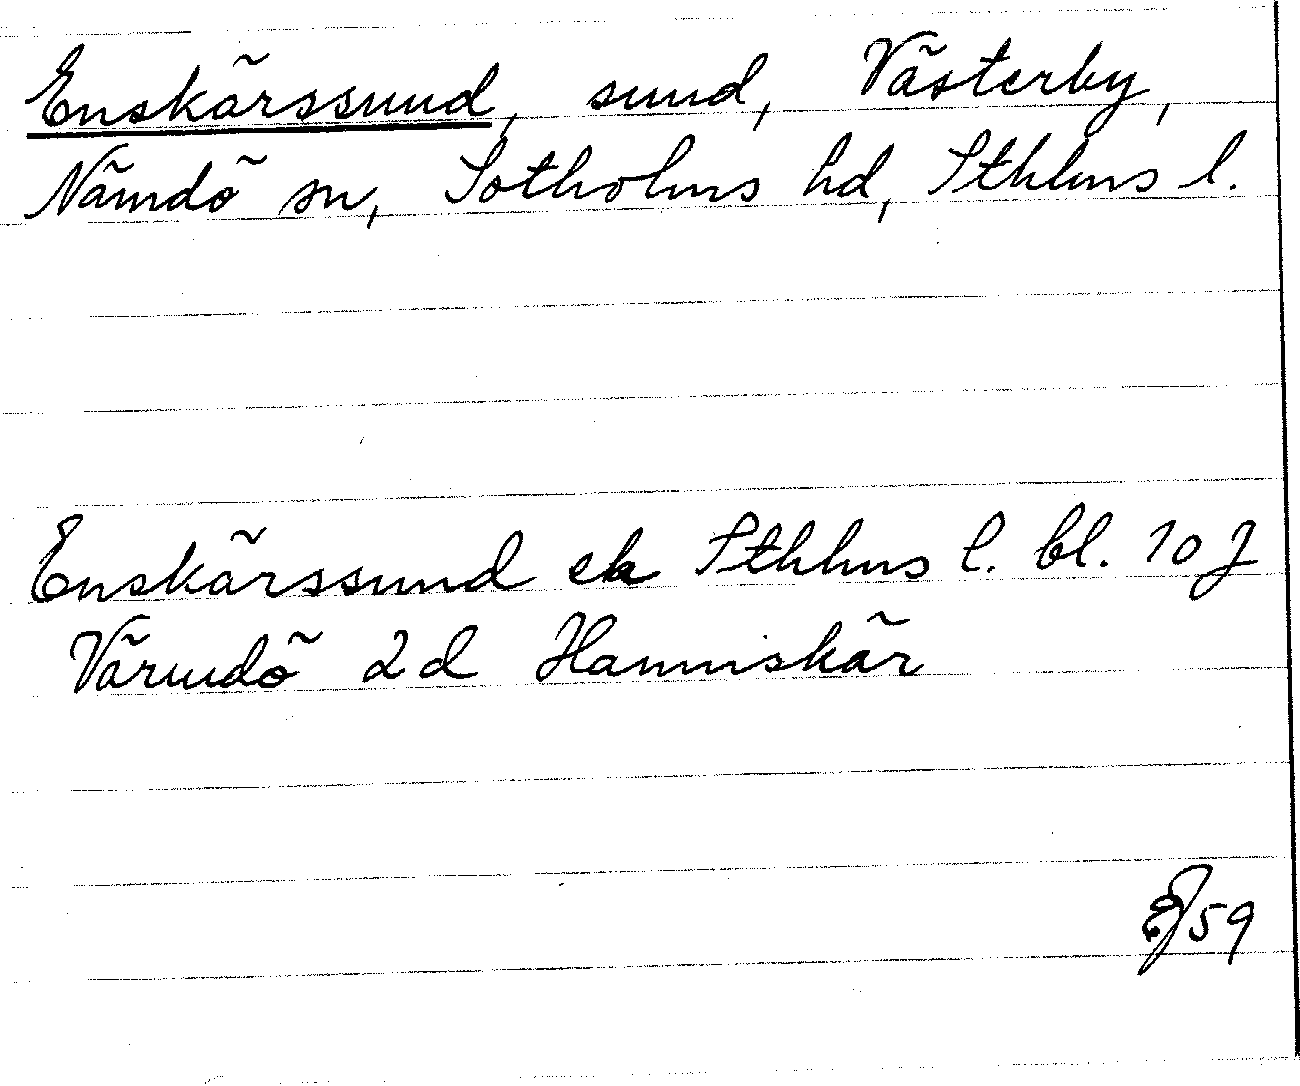 Enskärssund, sund, Västerby,
Nämdö sn, Sotholms hd, Sthlms l.
Enskärssund ek Sthlms l. bl. 10 J
Värmdö 2d Hamnskär
EJ 59